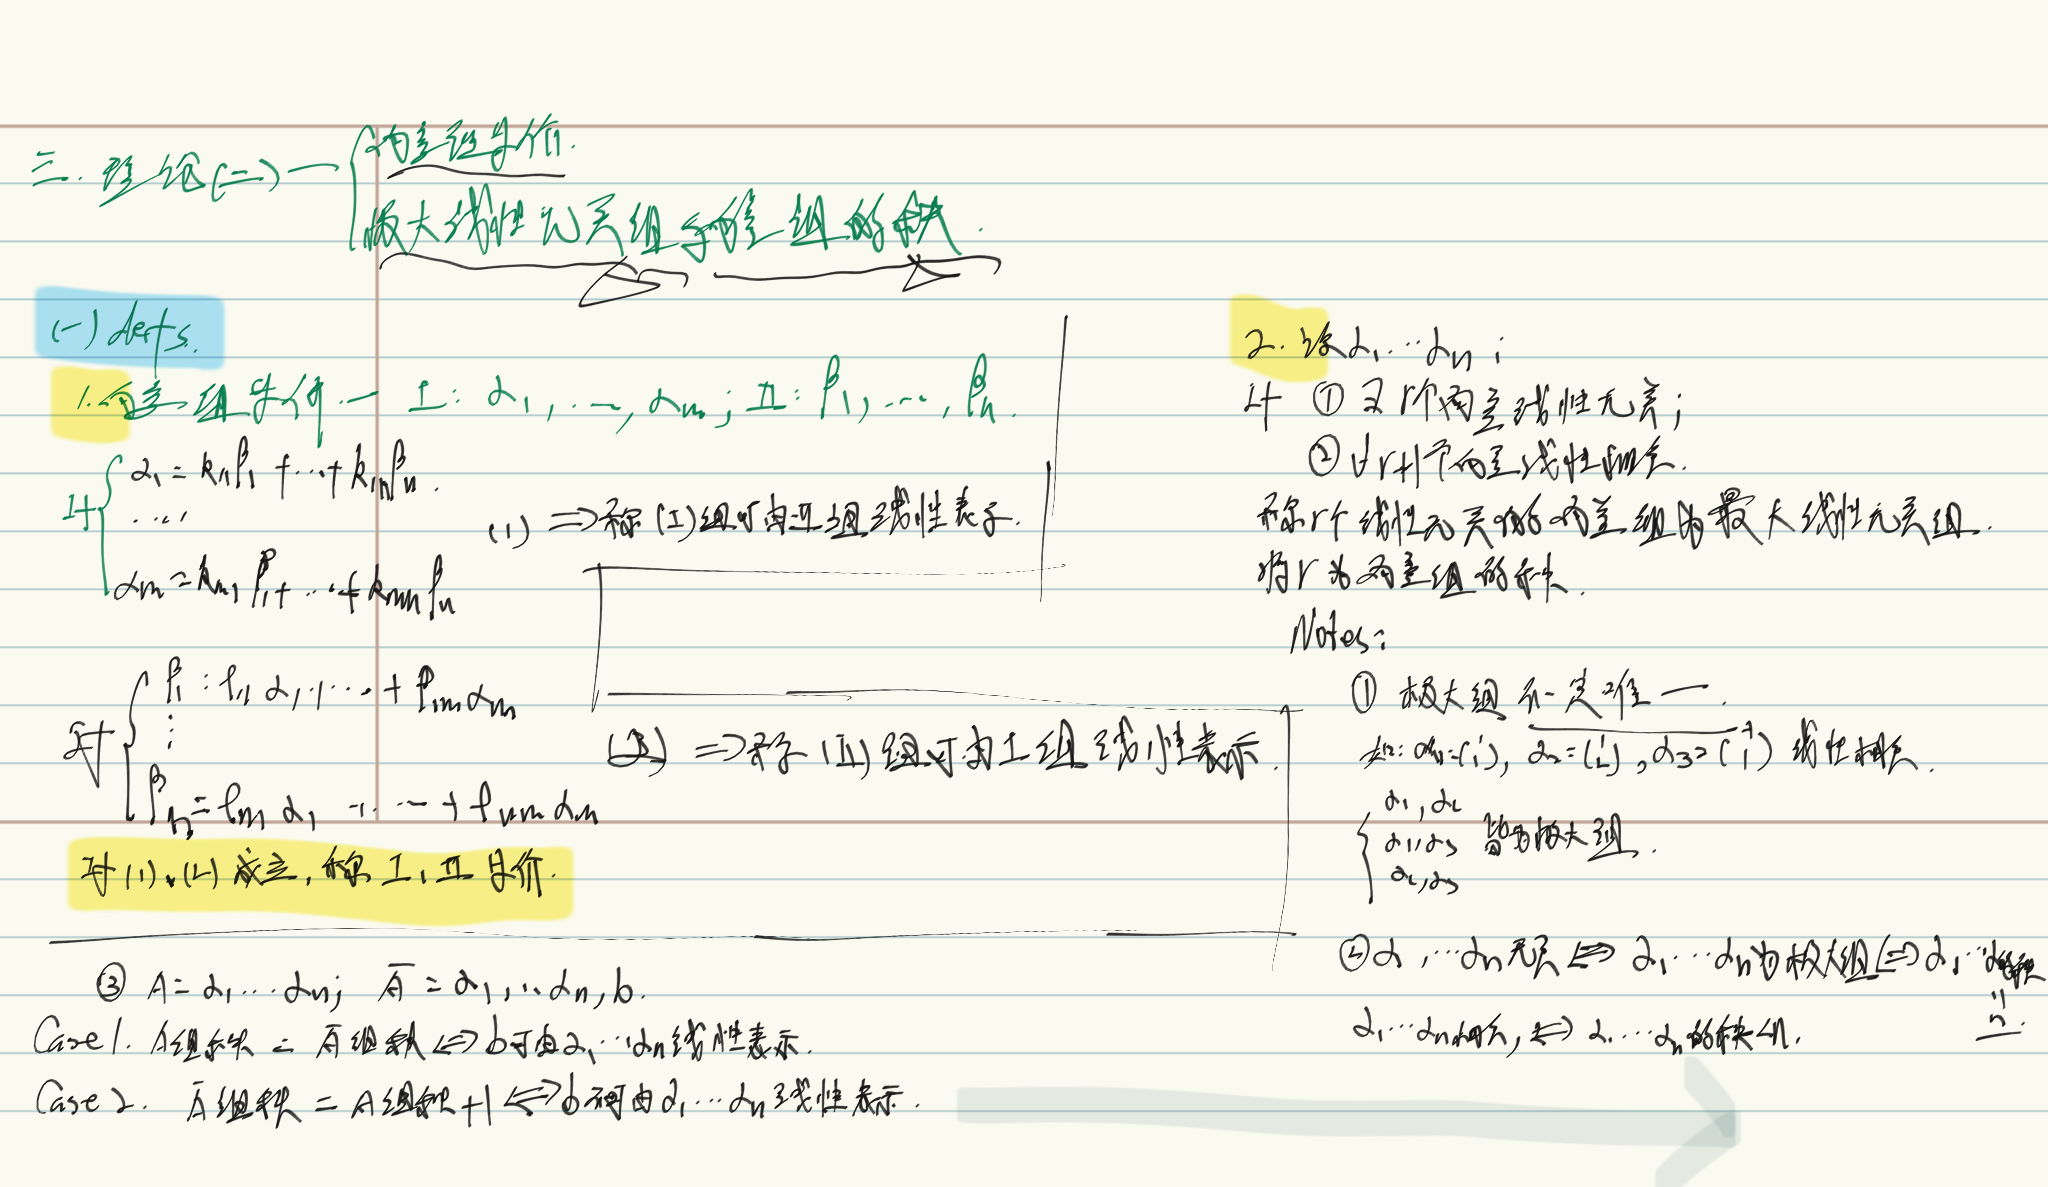 三. 理论(二) — { 向量组等价.
极大线性无关组与向量组的秩.
(一) defs.
1. 向量组等价 — I: α₁, …, αm; II: β₁, …, βn.
若 { α₁ = k₁₁β₁ + … + k₁nβn.
…
αm = km₁β₁ + … + kmnβn
(1) ⇒ 称(I)组可由II组线性表示.
若 { β₁ : l₁₁α₁, … + l₁mαm
⋮
βn = ln₁α₁ … + lnmαm
(2) ⇒ 称(II)组可由I组线性表示.
若(1)、(2)成立, 称I, II等价.
2. 设α₁…αn :
若 ① ∃ r个向量线性无关;
② ∀ r+1个向量线性相关.
称r个线性无关的向量组为最大线性无关组.
称r为向量组的秩.
Notes:
① 极大组不一定唯一.
如: α₁=(¹₁), α₂=(¹₂), α₃=(⁻¹₁) 线性相关.
{ α₁, α₂
α₁, α₃ 皆为极大组.
α₂, α₃
② α₁…αn无关 ⇔ α₁…αn为极大组 ⇔ α₁…αn秩
= n.
α₁…αn相关, ⇔ α₁…αn的秩<n.
③ A = α₁…αn; Ā = α₁, … αn, b.
Case 1. A组秩 = Ā组秩 ⇔ b可由α₁…αn线性表示.
Case 2. Ā组秩 = A组秩+1 ⇔ b不可由α₁…αn线性表示.